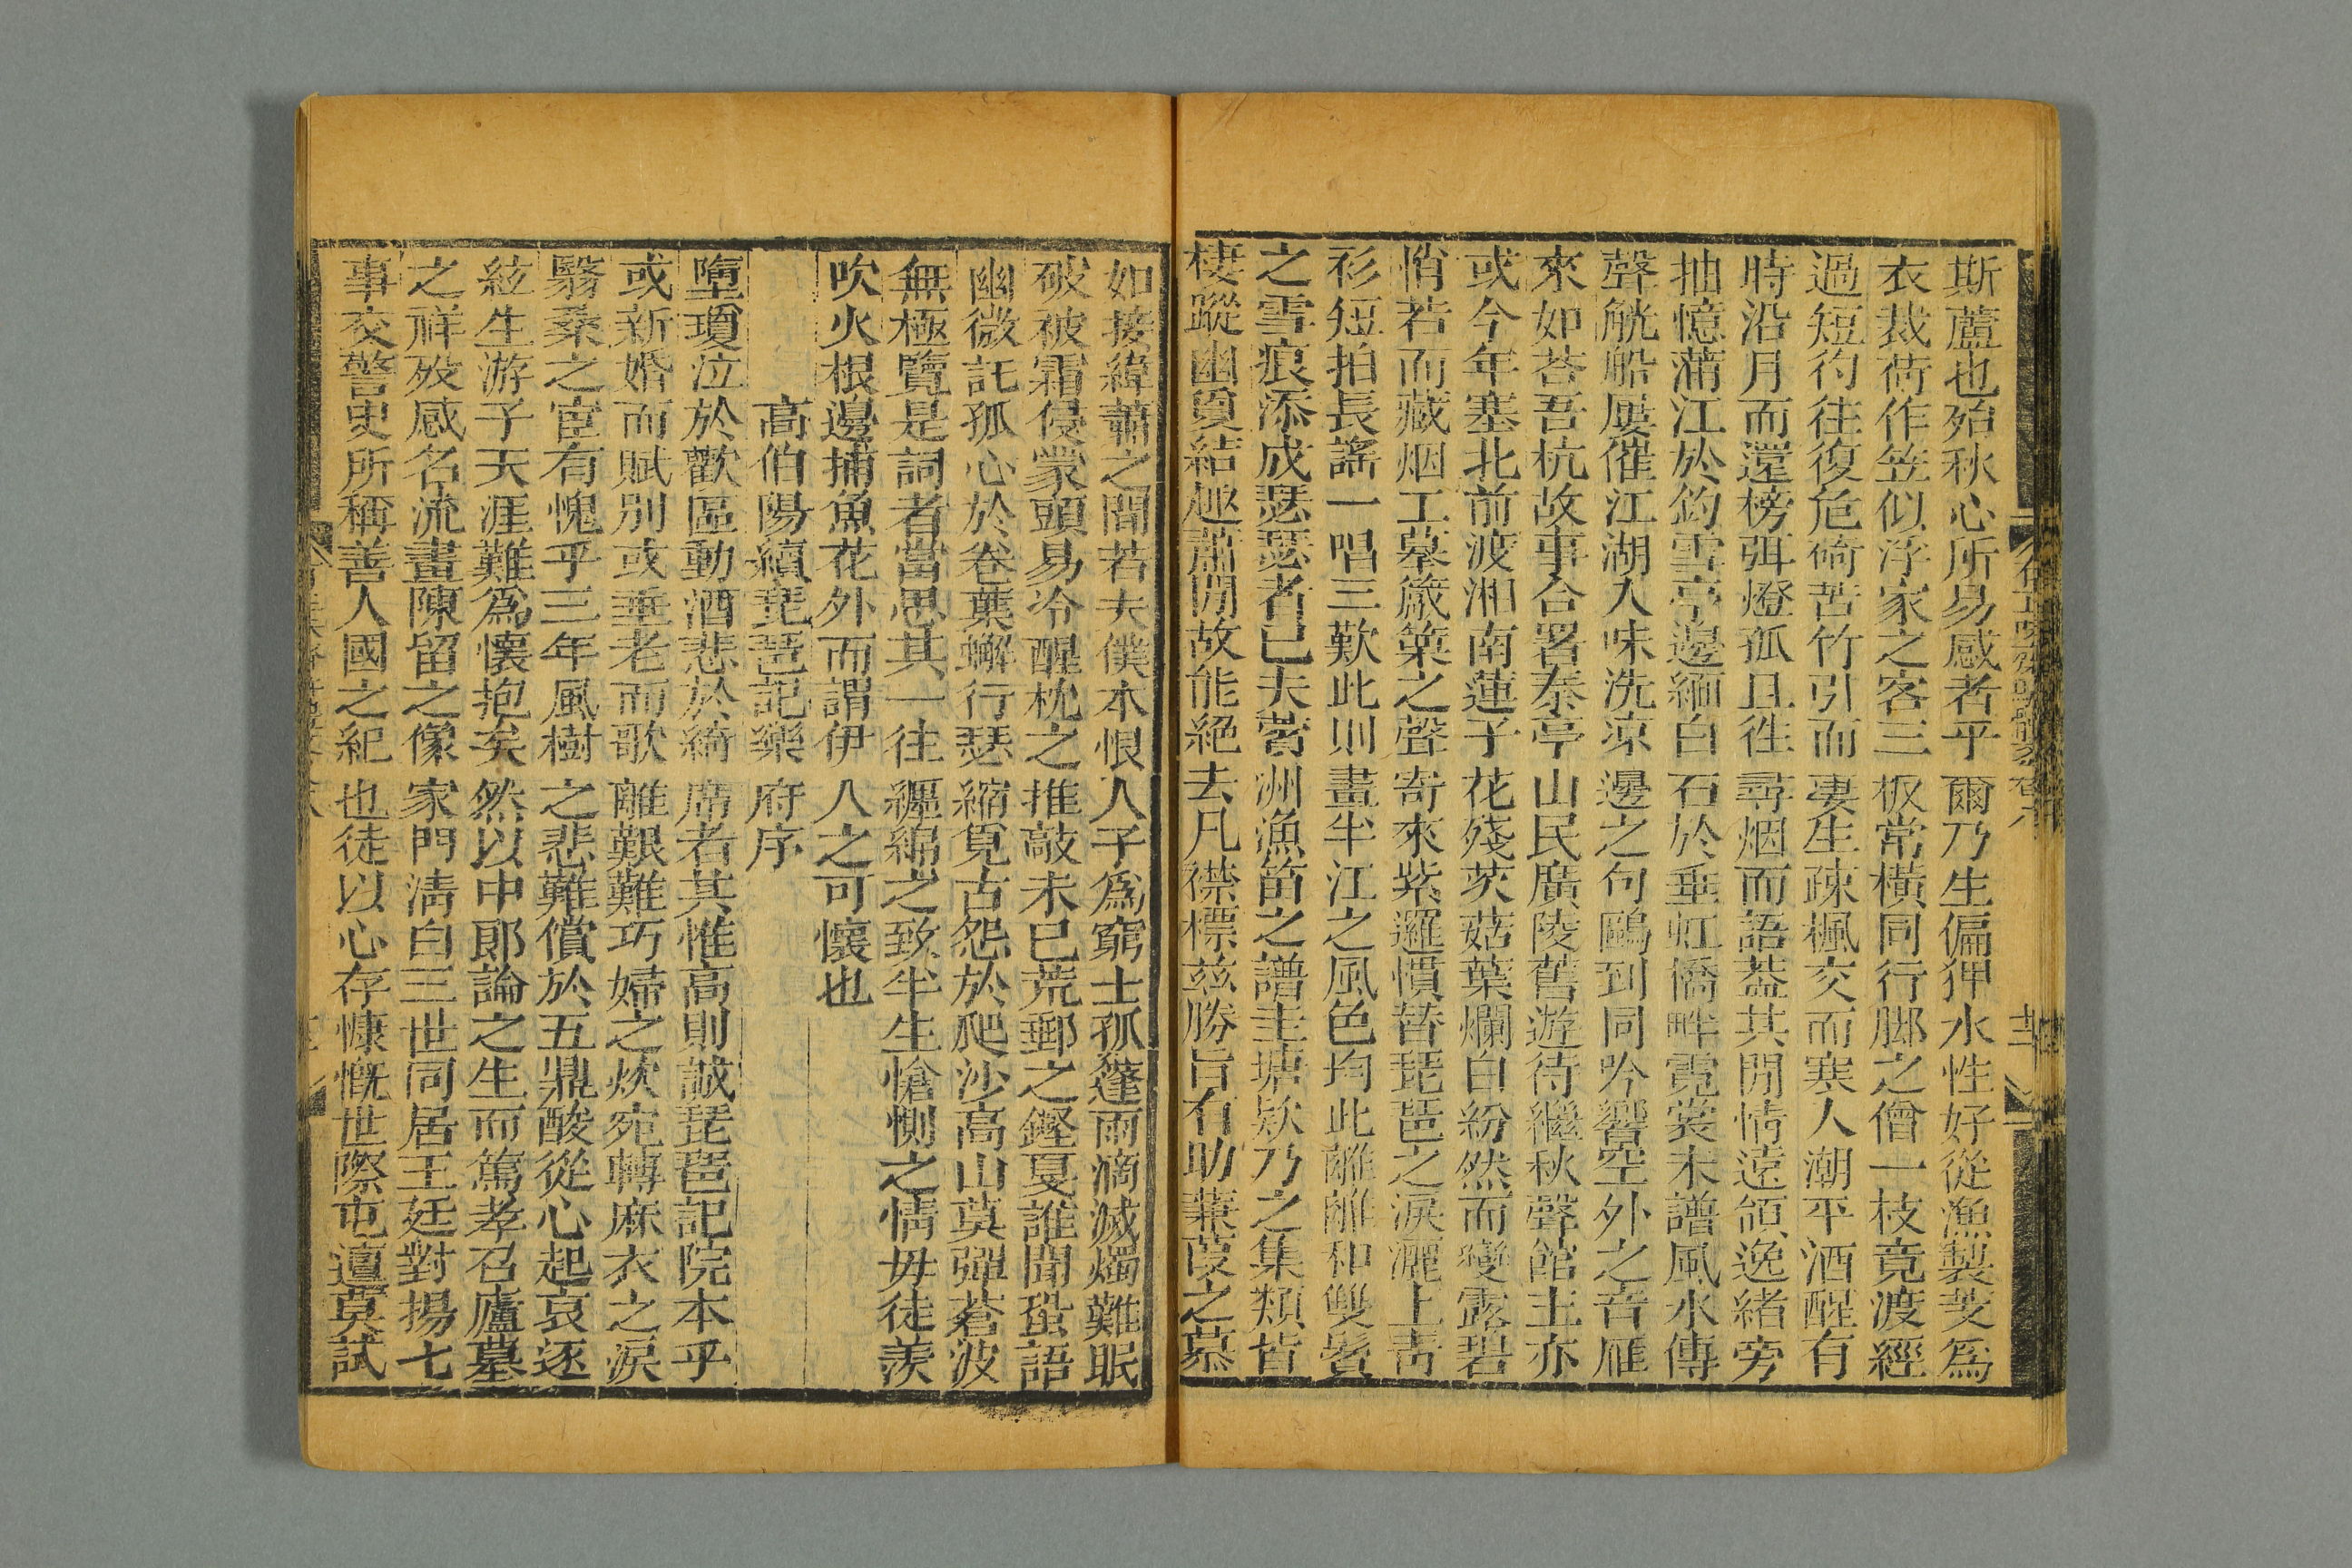 斯蘆也殆秋心所易感者乎爾乃生偏狎水性好從漁製芰爲
衣裁荷作笠似浮家之客三板常橫同行腳之僧一枝竟渡經
過短彴往復危碕苦竹引而妻生疎楓交而寒人潮平酒醒有
時沿月而還榜弭燈孤且徃尋烟而語葢其閒情遠頜逸緒旁
抽憶蒲江於釣雪亭邊緬白石於垂虹僑畔霓裳未譜風水傳
聲觥船屢催江湖入味洗凉邊之句鷗到同吟響空外之音雁
來如荅吾杭故事合署秦亭山民廣陵舊遊待繼秋聲館主亦
或今年塞北前渡湘南蓮子花殘茨菇葉爛白紛然而變露碧
悄若而藏烟工摹簸篥之聲寄來紫邏慣替琵琶之淚灑上青
衫短拍長謠一唱三歎此則畫半江之風色均此離離和雙鬢
之雪痕添成瑟瑟者已夫薲洲漁笛之譜圭塘欵乃之集類皆
棲蹤幽夐結趣蕭閒故能絕去凡襟標茲勝旨有助蒹葭之慕
如接緯蕭之閒若夫僕本恨人子爲窮士孤篷雨滴滅燭難眠
破被霜侵蒙頭易冷醒枕之推敲未已荒郵之鏗戛誰聞蛩語
幽微託孤心於卷葉蠏行瑟縮覓古怨於爬沙高山莫彈蒼波
無極覽是詞者當思其一往纒綿之致半生愴惻之情毋徒羨
吹火根邊捕魚花外而謂伊人之可懷也
高伯陽續琵琶記樂府序
墮瓊泣於歡區動酒悲於綺席者其惟高則誠琵琶記院本乎
或新婚而賦別或垂老而歌離艱難巧婦之炊宛轉麻衣之淚
翳桑之宦有愧乎三年風樹之悲難償於五鼎酸從心起哀逐
絃生游子天涯難爲懷抱矣然以中郞論之生而篤孝召廬墓
之祥歿感名流畫陳留之像家門淸白三世同居王廷對揚七
事交警史所稱善人國之紀也徒以心存慷慨世際屯邅莫試